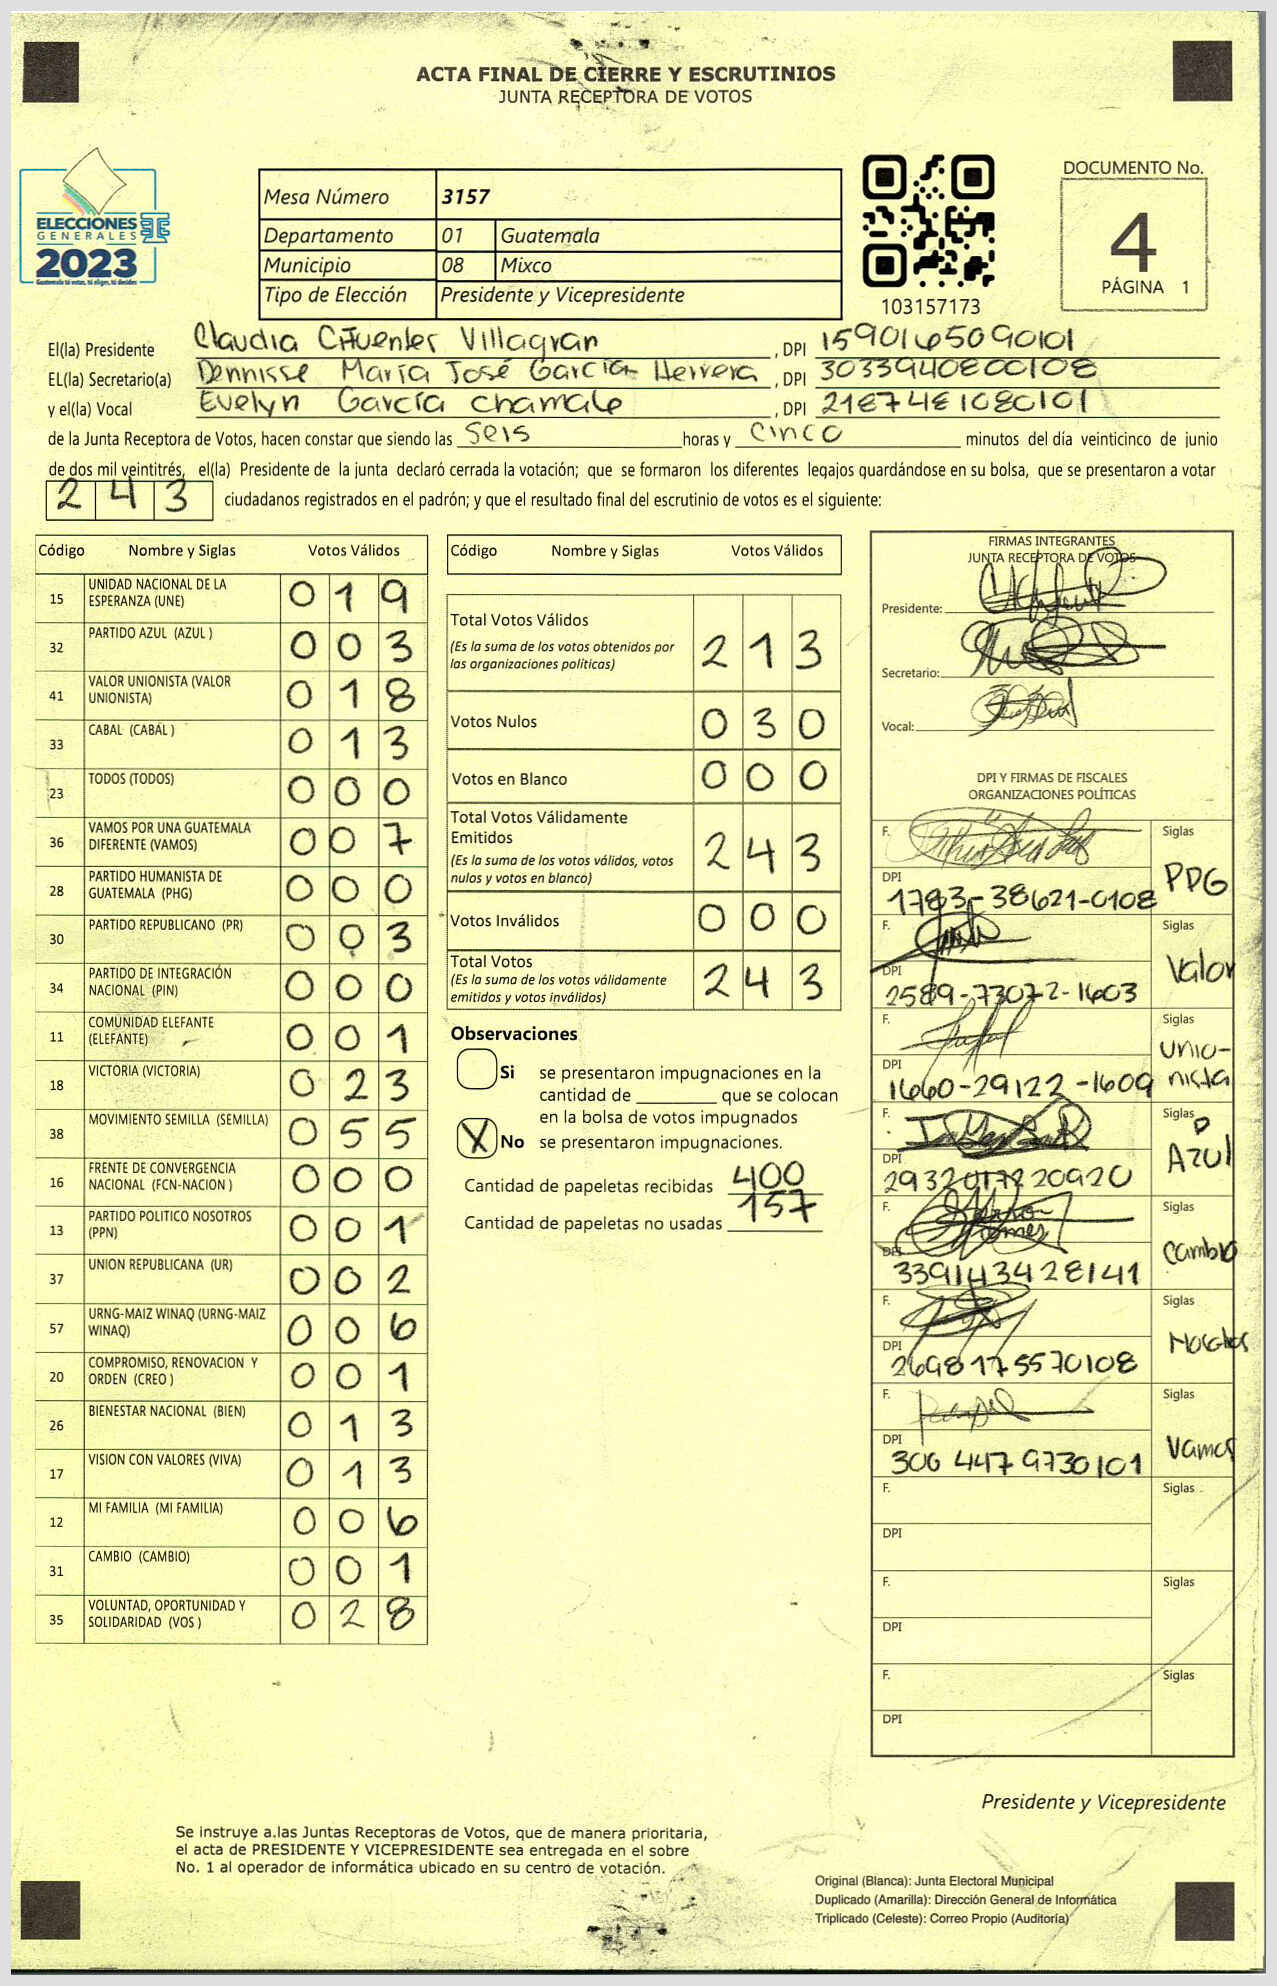 ACTA FINAL DE CIERRE Y ESCRUTINIOS
JUNTA RECEPTORA DE VOTOS
ELECCIONES
GENERALES
2023
Guatemala tú votas, tú eliges, tú decides
Mesa Número 3157
Departamento 01 Guatemala
Municipio 08 Mixco
Tipo de Elección Presidente y Vicepresidente
103157173
DOCUMENTO No.
4
PÁGINA 1
El(la) Presidente Claudia Cifuentes Villagran , DPI 1590165090101
EL(la) Secretario(a) Dennisse María José García Herrera , DPI 3033940800108
y el(la) Vocal Evelyn García Chamale , DPI 2187481080101
de la Junta Receptora de Votos, hacen constar que siendo las seis horas y cinco minutos del día veinticinco de junio
de dos mil veintitrés, el(la) Presidente de la junta declaró cerrada la votación; que se formaron los diferentes legajos guardándose en su bolsa, que se presentaron a votar
243 ciudadanos registrados en el padrón; y que el resultado final del escrutinio de votos es el siguiente:
Código Nombre y Siglas Votos Válidos
15 UNIDAD NACIONAL DE LA ESPERANZA (UNE) 019
32 PARTIDO AZUL (AZUL ) 003
41 VALOR UNIONISTA (VALOR UNIONISTA) 018
33 CABAL (CABAL ) 013
23 TODOS (TODOS) 000
36 VAMOS POR UNA GUATEMALA DIFERENTE (VAMOS) 007
28 PARTIDO HUMANISTA DE GUATEMALA (PHG) 000
30 PARTIDO REPUBLICANO (PR) 003
34 PARTIDO DE INTEGRACIÓN NACIONAL (PIN) 000
11 COMUNIDAD ELEFANTE (ELEFANTE) 001
18 VICTORIA (VICTORIA) 023
38 MOVIMIENTO SEMILLA (SEMILLA) 055
16 FRENTE DE CONVERGENCIA NACIONAL (FCN-NACION ) 000
13 PARTIDO POLITICO NOSOTROS (PPN) 001
37 UNION REPUBLICANA (UR) 002
57 URNG-MAIZ WINAQ (URNG-MAIZ WINAQ) 006
20 COMPROMISO, RENOVACION Y ORDEN (CREO ) 001
26 BIENESTAR NACIONAL (BIEN) 013
17 VISION CON VALORES (VIVA) 013
12 MI FAMILIA (MI FAMILIA) 006
31 CAMBIO (CAMBIO) 001
35 VOLUNTAD, OPORTUNIDAD Y SOLIDARIDAD (VOS ) 028
Código Nombre y Siglas Votos Válidos
Total Votos Válidos 213
(Es la suma de los votos obtenidos por
las organizaciones políticas)
Votos Nulos 030
Votos en Blanco 000
Total Votos Válidamente
Emitidos 243
(Es la suma de los votos válidos, votos
nulos y votos en blanco)
Votos Inválidos 000
Total Votos 243
(Es la suma de los votos válidamente
emitidos y votos inválidos)
Observaciones
Si se presentaron impugnaciones en la
cantidad de ________ que se colocan
en la bolsa de votos impugnados
X No se presentaron impugnaciones.
Cantidad de papeletas recibidas 400
Cantidad de papeletas no usadas 157
FIRMAS INTEGRANTES
JUNTA RECEPTORA DE VOTOS
Presidente:
Secretario:
Vocal:
DPI Y FIRMAS DE FISCALES
ORGANIZACIONES POLÍTICAS
F. Siglas PPG
DPI 1783-38621-0108
F. Siglas Valor
DPI 2589-73072-1603
F. Siglas Unio-
DPI 1660-29122-1609 nista
F. Siglas Azul
DPI 2932017220920
F. Siglas Cambio
DPI 3391434428141
F. Siglas Nosotros
DPI 2698175570108
F. Siglas Vamos
DPI 306 447 9730101
F. Siglas
DPI
F. Siglas
DPI
F. Siglas
DPI
Presidente y Vicepresidente
Se instruye a las Juntas Receptoras de Votos, que de manera prioritaria,
el acta de PRESIDENTE Y VICEPRESIDENTE sea entregada en el sobre
No. 1 al operador de informática ubicado en su centro de votación.
Original (Blanca): Junta Electoral Municipal
Duplicado (Amarilla): Dirección General de Informática
Triplicado (Celeste): Correo Propio (Auditoría)